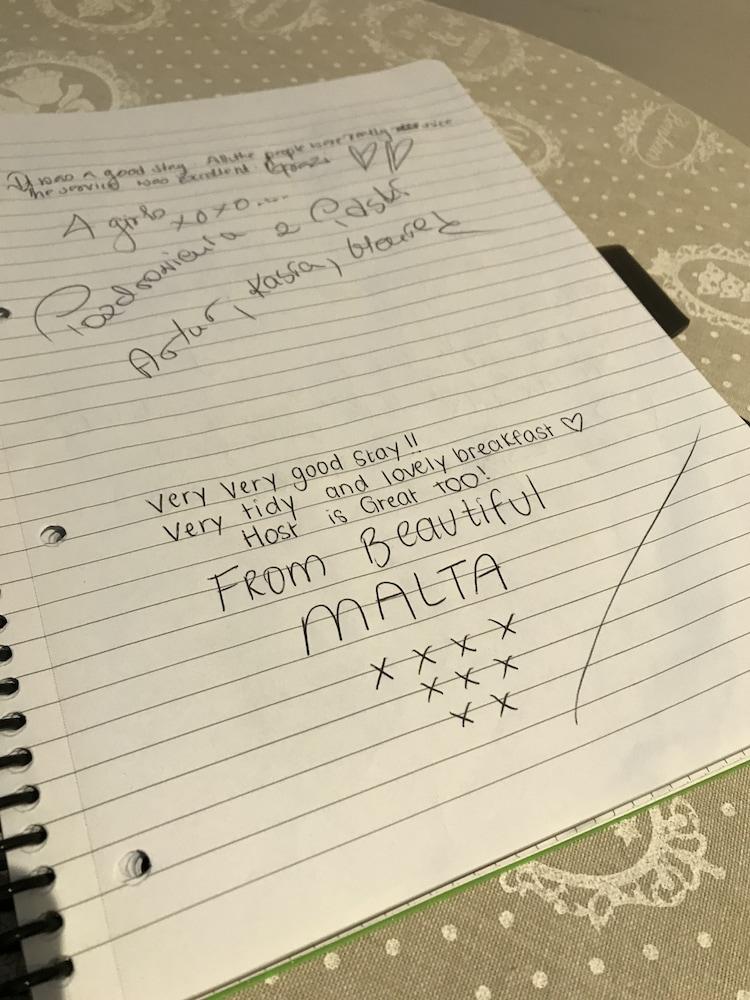 It was a good stay. All the people were really nice
the service was excellent. Grazi ♡♡
4 girls xoxo....
Pozdrowienia z Polski
Artur, Kasia,
Very Very good stay!!
Very tidy and lovely breakfast ♡
Host is Great too!
FROM Beautiful
MALTA
x x x x
x x x
x x